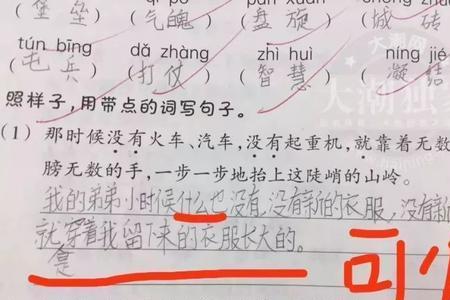 bǎo lěi qì pò pán xuán chéng zhuān
(堡垒)(气魄)(盘旋)(城砖
tún bīng dǎ zhàng zhì huì níng jié
(屯兵)(打仗)(智慧)(凝结
照样子,用带点的词写句子。
(1) 那时候没有火车、汽车,没有起重机,就靠着无数
膀无数的手,一步一步地抬上这陡峭的山岭。
我的弟弟小时候什么也没有,没有新的衣服,没有新
就是穿着我留下来的衣服长大的。
可